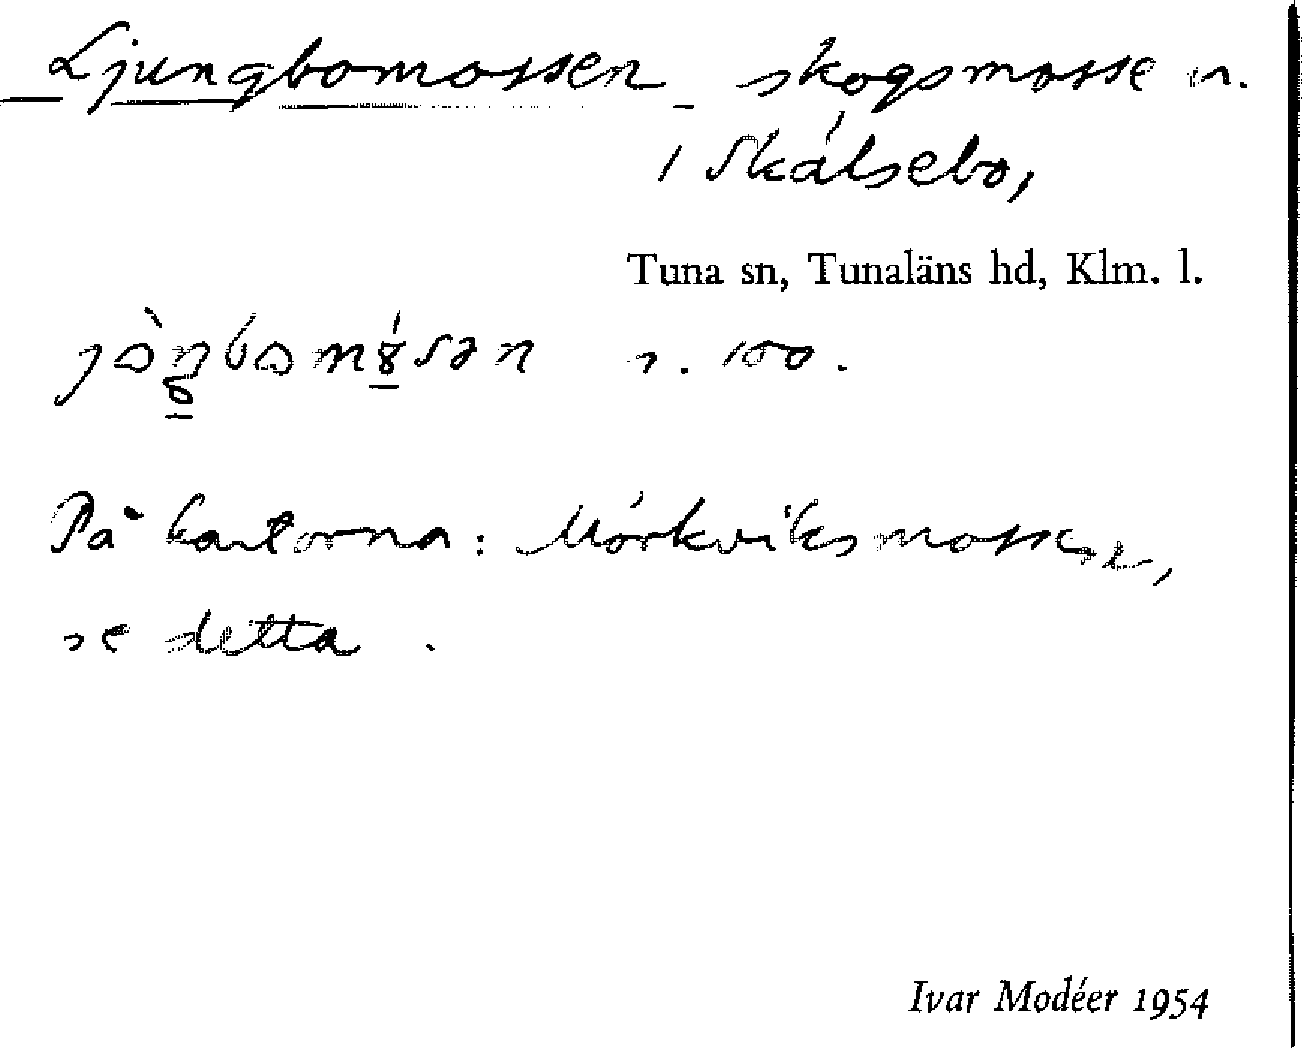 Ljungbomossen skogsmosse n.
i Skälsebo,
Tuna sn, Tunaläns hd, Klm. l.
r. 100.
På kartorna: Mörkviksmossen,
se detta.
Ivar Modéer 1954